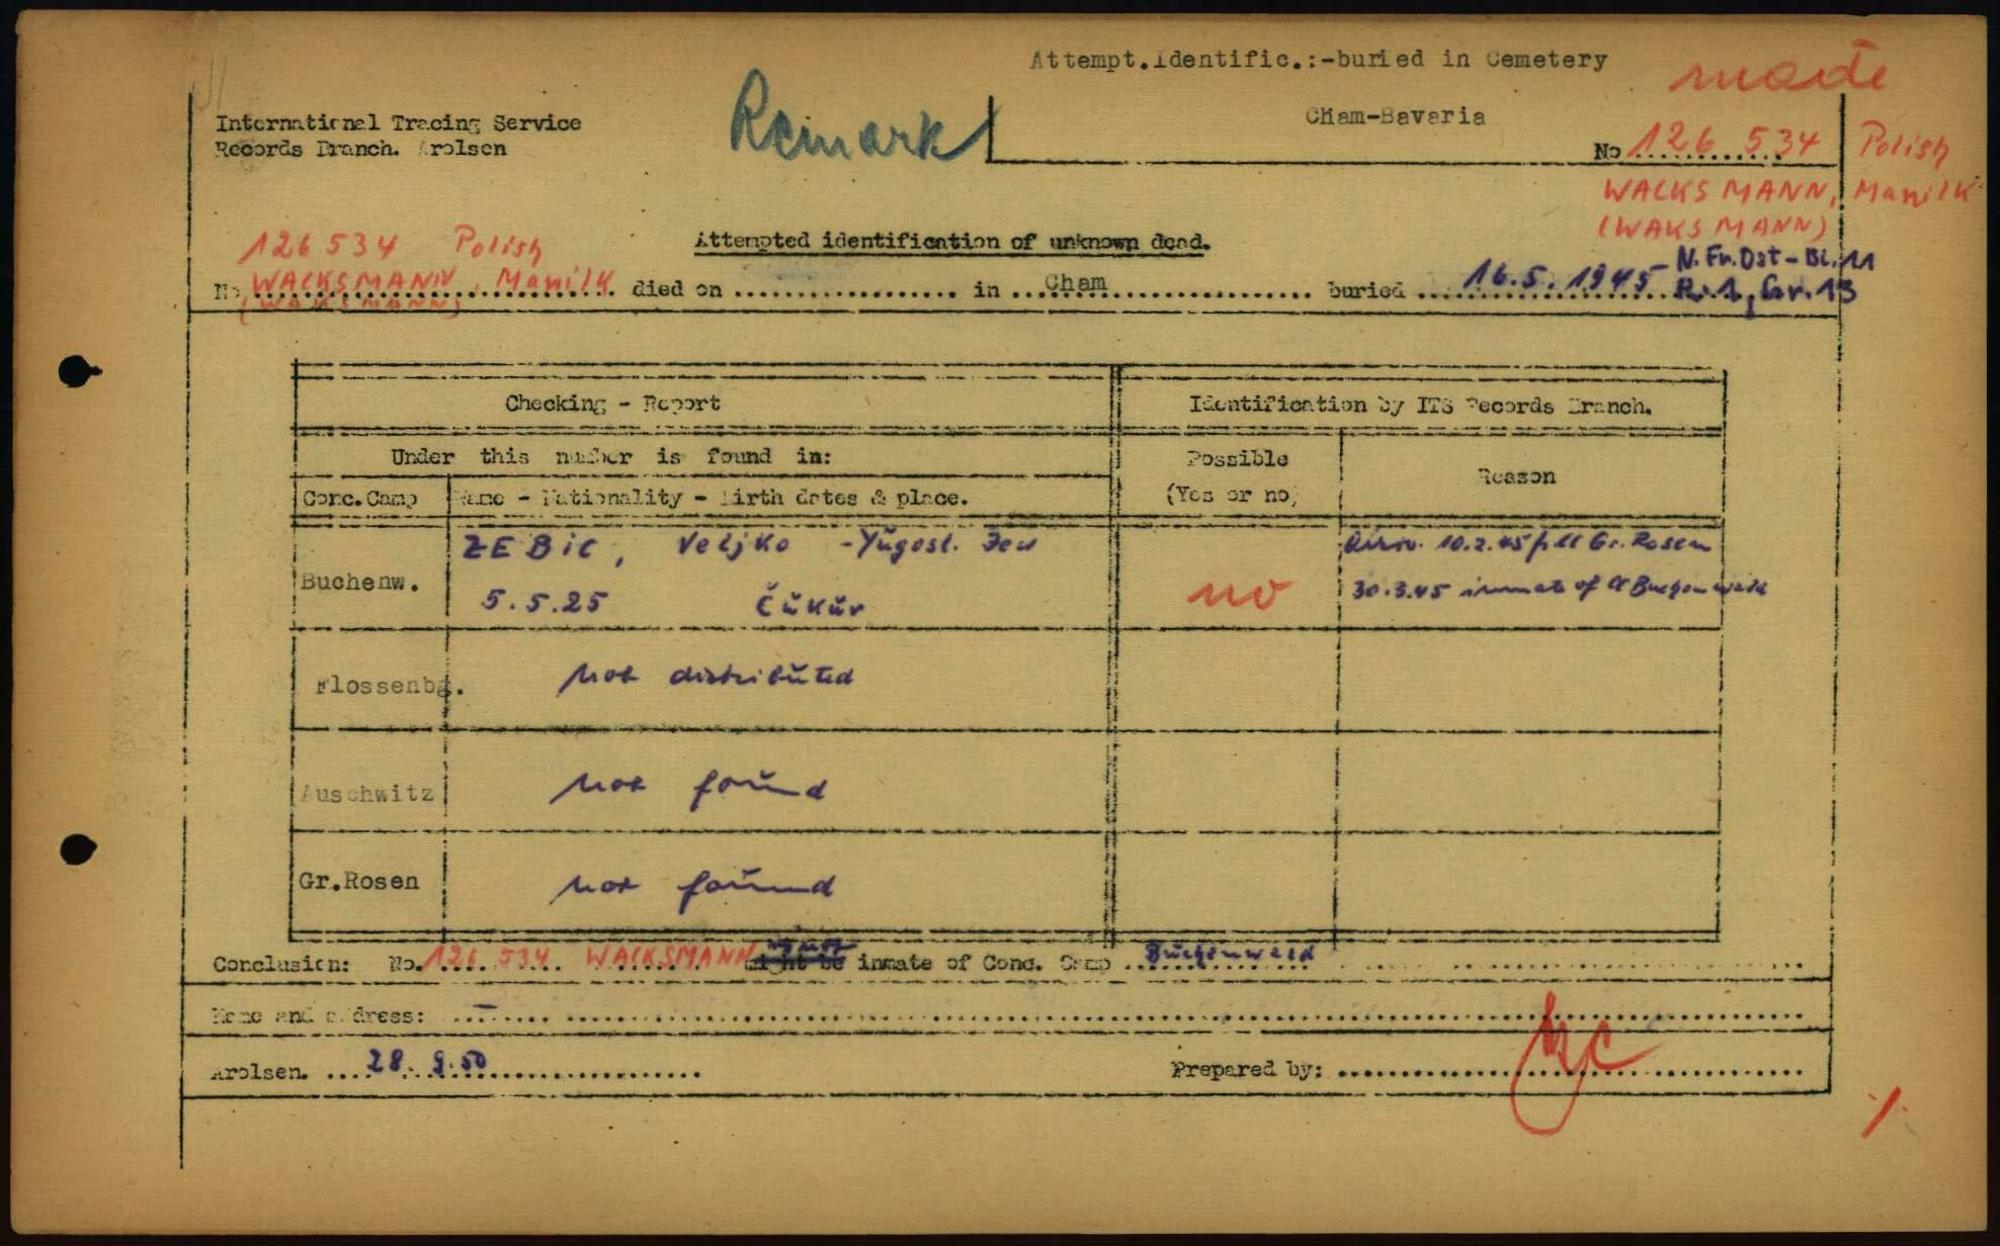 Attempt.Identific.:-buried in Cemetery
made
Remark
Cham-Bavaria
International Tracing Service
Records Branch. Arolsen
No 126 534 Polish
WACKSMANN, Manilk
(WAKSMANN)
Attempted identification of unknown dead.
126 534 Polish
No. WACKSMANN, Manilk died on .................. in ...Cham................... buried ... 16.5.1945 - N.Fr.Ost-Bl.11
(WAKSMANN)
R.1, Gr.13
Checking - Report
Identification by ITS Records Branch.
Under this number is found in:
Possible
(Yes or no)
Reason
Conc.Camp
Name - Nationality - Birth dates & place.
Buchenw.
ZEBIC, Veljko - Yugosl. Jew
5.5.25 Čukur
no
10.2.45 Gr. Rosen
30.3.45 inmate of Buchenwald
Flossenbg.
not distributed
Auschwitz
not found
Gr.Rosen
not found
Conclusion: No. 126 534 WACKSMANN might be inmate of Conc. Camp Buchenwald
Name and address: -
Arolsen. ....28.9.50
Prepared by: